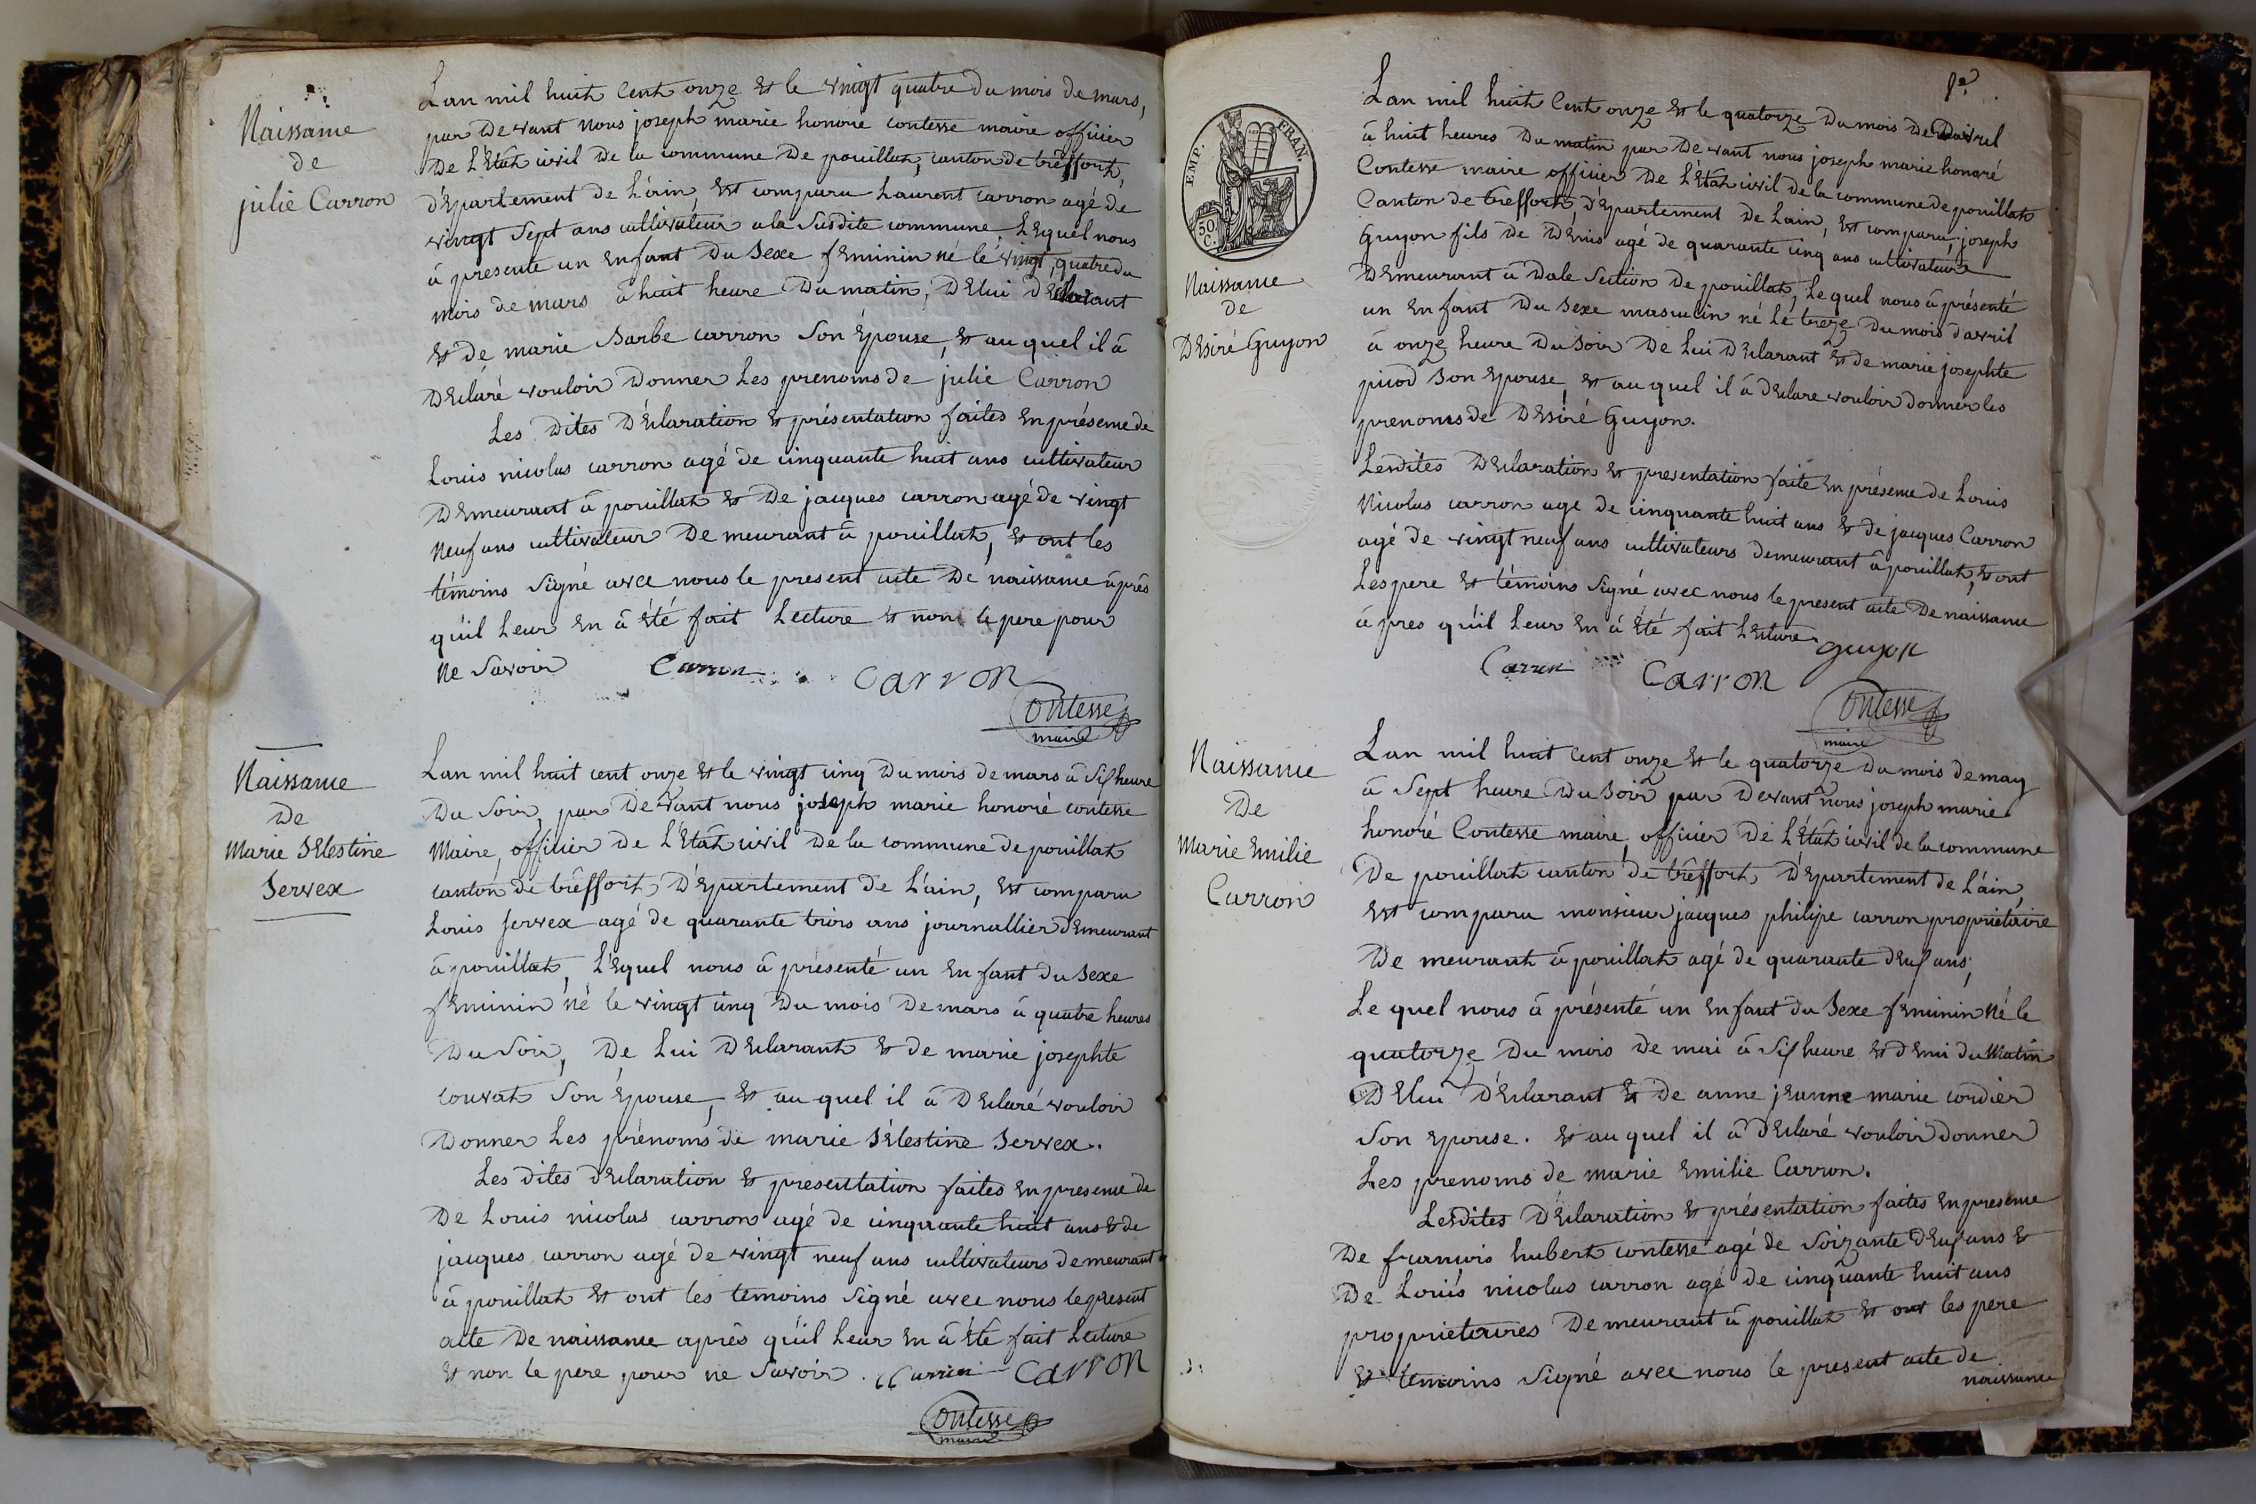 Naissance
de
julie Carron
Lan mil huit Cent onze et le vingt quatre du mois de mars,
par devant nous joseph marie honoré contesse maire officier
de l'Etat civil de la commune de pouillat, canton de trêffort,
département de l'ain, est comparu Laurent carron agé de
vingt sept ans cultivateur a la susdite commune, Lequel nous
à presenté un enfant du sexe feminin né le vingt, quatre du
mois de mars à huit heure du matin, de lui declarant
et de marie Barbe carron son épouse, et au quel il à
declaré vouloir donner les prenoms de julie Carron
Les dites déclaration et présentation faites en présence de
Louis nicolas carron agé de cinquante huit ans cultivateur
demeurant à pouillat et de jacques carron agé de vingt
neuf ans cultivateur demeurant à pouillat, et ont les
témoins signé avec nous le present acte de naissance àprès
qu'il leur en à été fait Lecture et non le pere pour
ne savoir Carron Carron
Contesse
maire
Naissance
de
Marie Sélestine
Servex
Lan mil huit cent onze et le vingt cinq du mois de mars à six heure
du soir, par devant nous joseph marie honoré contesse
Maire, officier de l'Etat civil de la commune de pouillat
canton de trêffort, département de l'ain, est comparu
Louis servex agé de quarante trois ans journallier demeurant
à pouillat, Lequel nous à présenté un enfant du sexe
feminin né le vingt cinq du mois de mars à quatre heures
du soir, de lui declarant et de marie josephte
couvat son épouse, et au quel il à declaré vouloir
donner les prénoms de marie Sélestine Servex.
Les dites declaration et presentation faites en presence de
de Louis nicolas carron agé de cinquante huit ans et de
jacques carron agé de vingt neuf ans cultivateurs demeurant
à pouillat et ont les temoins signé avec nous le present
acte de naissance après qu'il leur en à été fait Lecture
et non le pere pour ne savoir. Carron Carron
Contesse
maire
EMP. FRAN.
50
C.
Naissance
de
Desiré Guyon
Lan mil huit Cent onze et le quatorze du mois de Davril
à huit heures du matin par devant nous joseph marie honoré
Contesse maire officier de l'Etat civil de la commune de pouillat
Canton de trêffort, département de Lain, est comparu, joseph
Guyon fils de denis agé de quarante cinq ans cultivateur
demeurant à Dale section de pouillat, le quel nous à présenté
un enfant du sexe masculin né le treze du mois d'avril
à onze heure du soir de lui declarant et de marie josephte
picod son epouse et au quel il à declare vouloir donner les
prenoms de Desiré Guyon.
Lesdites declaration et presentation faite en présence de Louis
Nicolas carron age de cinquante huit ans et de jacques Carron
agé de vingt neuf ans cultivateurs demeurant à pouillat, et ont
Les pere et témoins signé avec nous le present acte de naissance
à pres qu'il leur en à été fait lecture Guyon
Carron Carron
Contesse
maire
Naissance
de
Marie Emilie
Carron
Lan mil huit cent onze et le quatorze du mois de may
à sept heure du soir par devant nous joseph marie
honoré Contesse maire, officier de l'Etat civil de la commune
de pouillat canton de trêffort, département de l'ain,
est comparu monsieur jacques philipe carron proprietaire
de meurant à pouillat agé de quarante deux ans,
Le quel nous à présenté un enfant du sexe feminin né le
quatorze du mois de mai à six heure et demi du matin
de lui déclarant et de anne jeanne marie cordier
son epouse. et au quel il à déclaré vouloir donner
Les prenoms de marie Emilie Carron.
Lesdites déclaration et présentation faites en presence
de francois hubert contesse agé de soixante deux ans et
de Louis nicolas carron agé de cinquante huit ans
proprietaires demeurant à pouillat et ont les pere
et temoins signé avec nous le present acte de
naissance